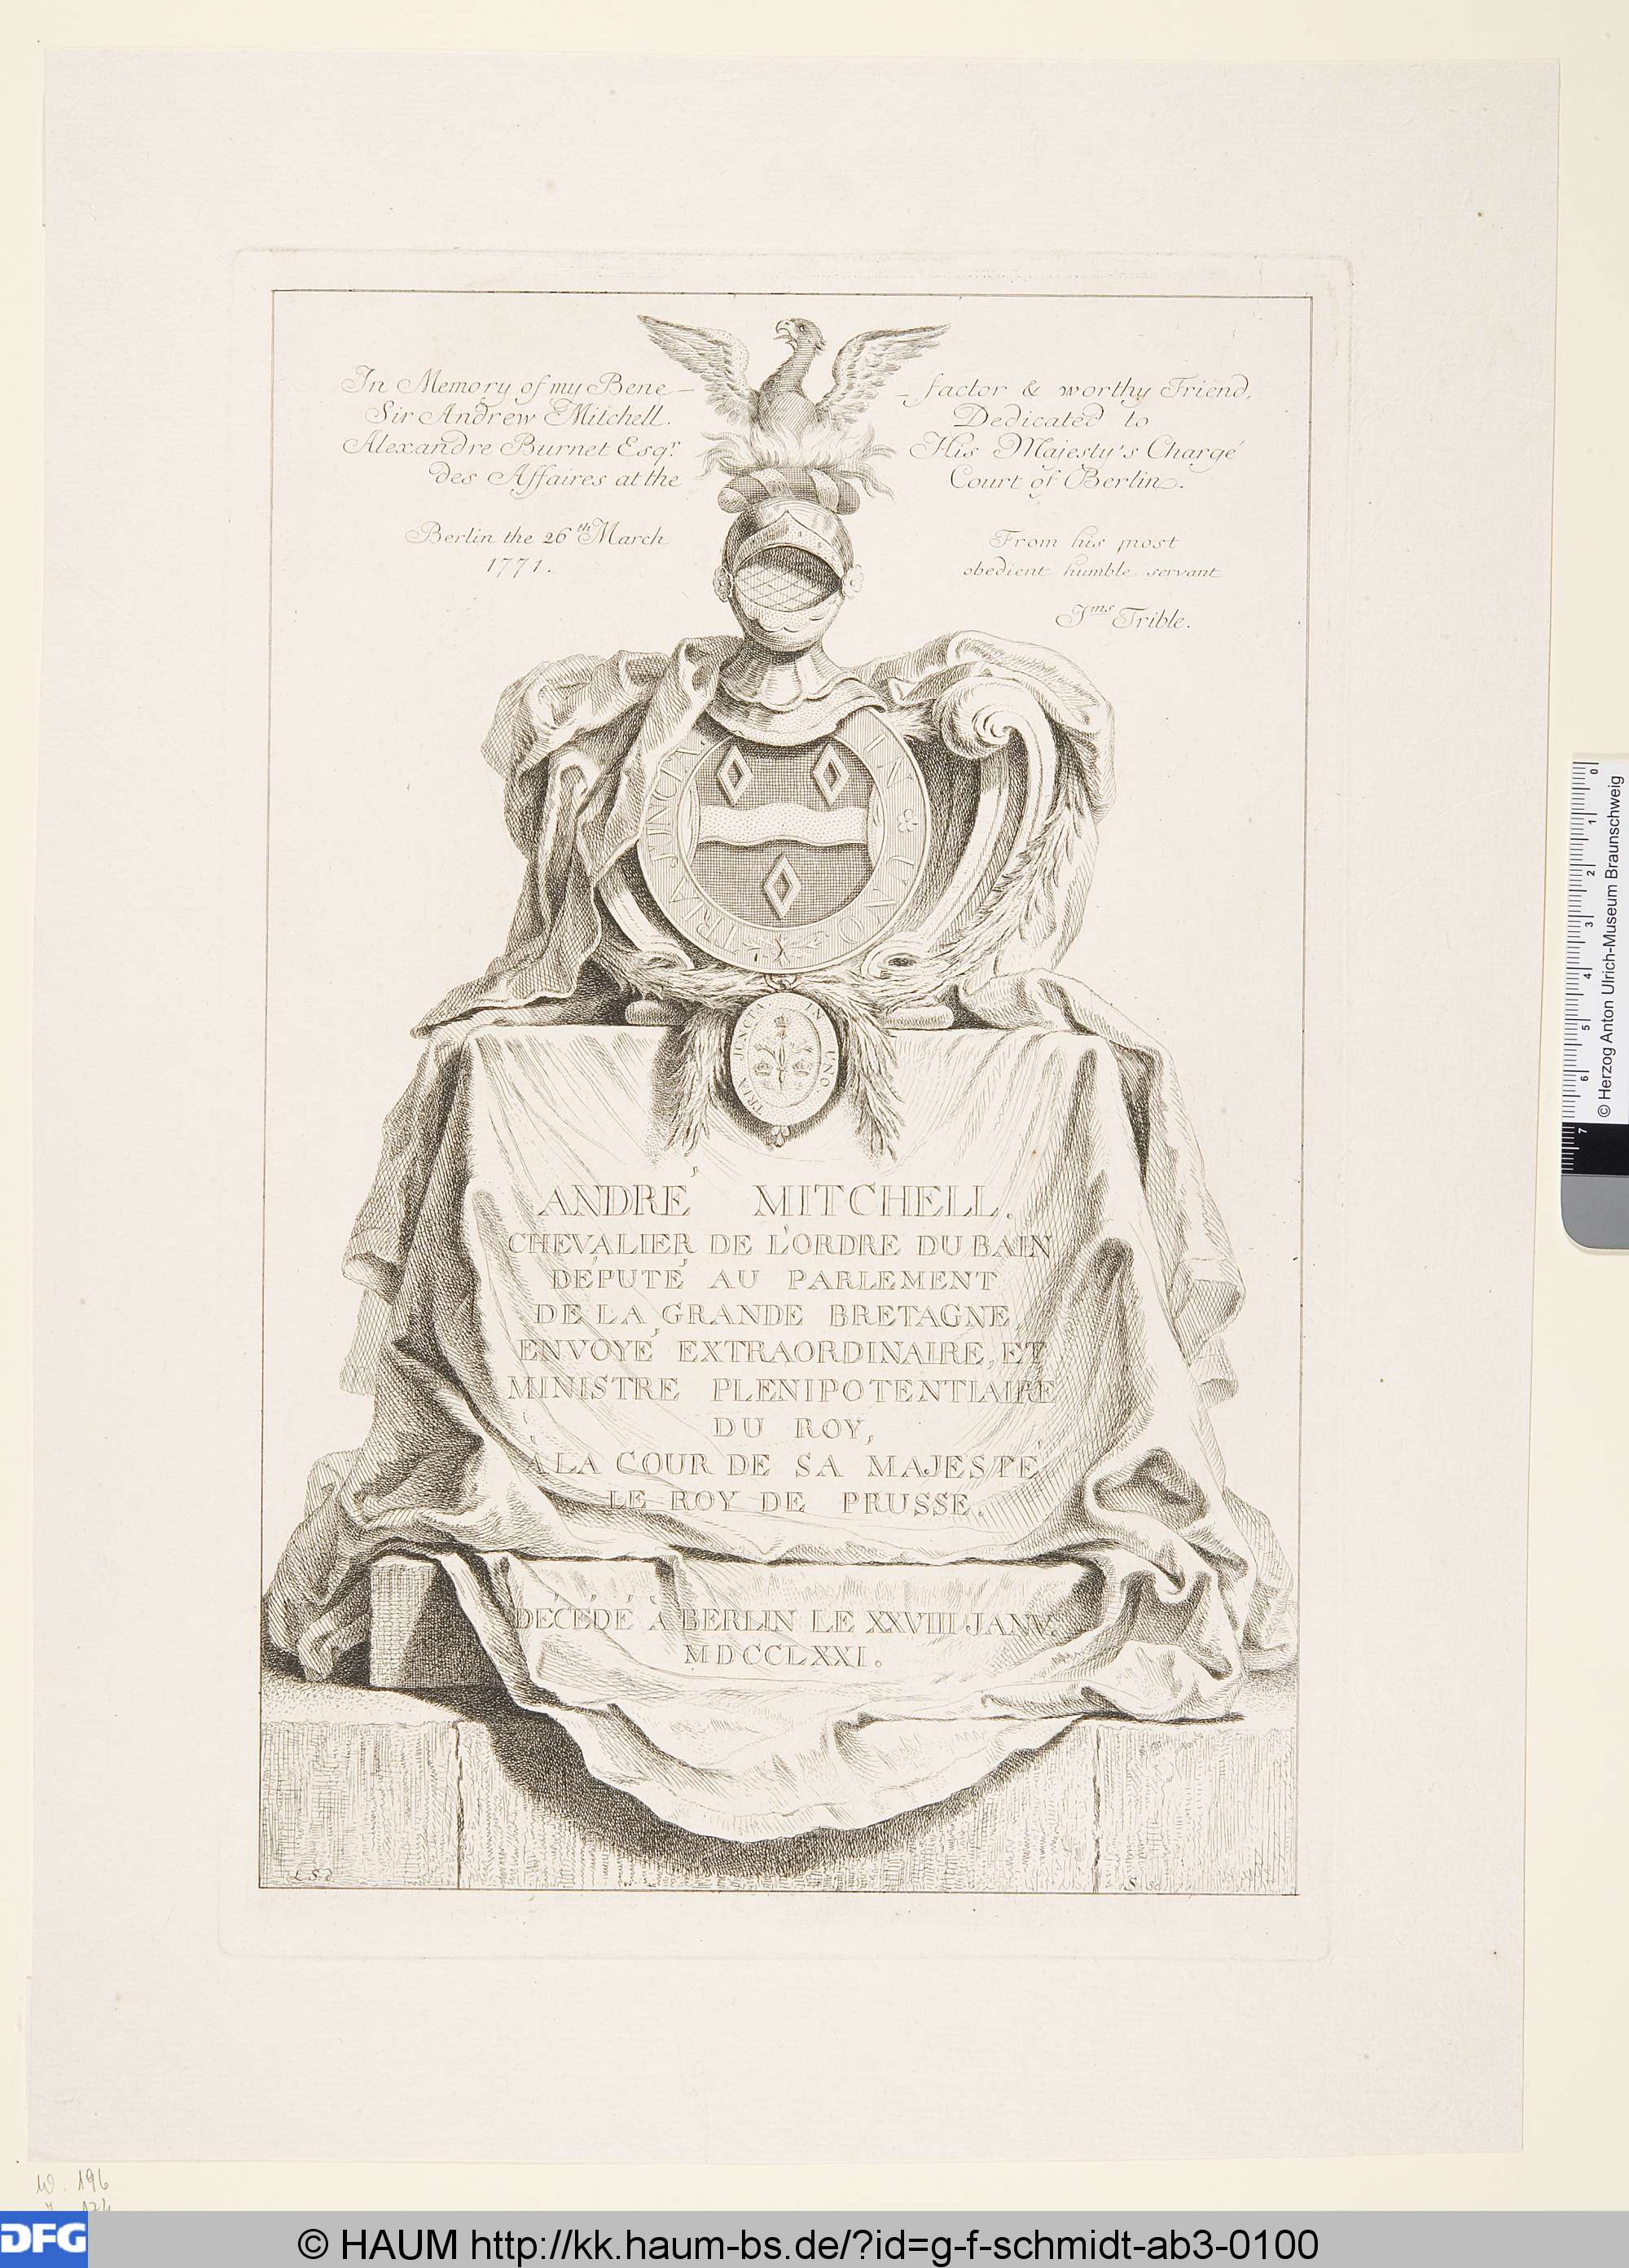 In Memory of my Bene- -factor & worthy Friend,
Sir Andrew Mitchell. Dedicated to
Alexandre Burnet Esqr. His Majesty's Chargé
des Affaires at the Court of Berlin.
Berlin the 26th March
1771.
From his most
obedient humble servant
Jms Trible.
TRIA JUNCTA IN UNO
TRIA JUNCTA IN UNO
ANDRÉ MITCHELL.
CHEVALIER DE L'ORDRE DU BAIN
DÉPUTÉ AU PARLEMENT
DE LA GRANDE BRETAGNE,
ENVOYÉ EXTRAORDINAIRE, ET
MINISTRE PLENIPOTENTIAIRE
DU ROY,
À LA COUR DE SA MAJESTÉ
LE ROY DE PRUSSE.
DÉCÉDÉ À BERLIN LE XXVIII JANV.
MDCCLXXI.
0 1 2 3 4 5 6 7
© Herzog Anton Ulrich-Museum Braunschweig
W. 196
DFG
© HAUM http://kk.haum-bs.de/?id=g-f-schmidt-ab3-0100